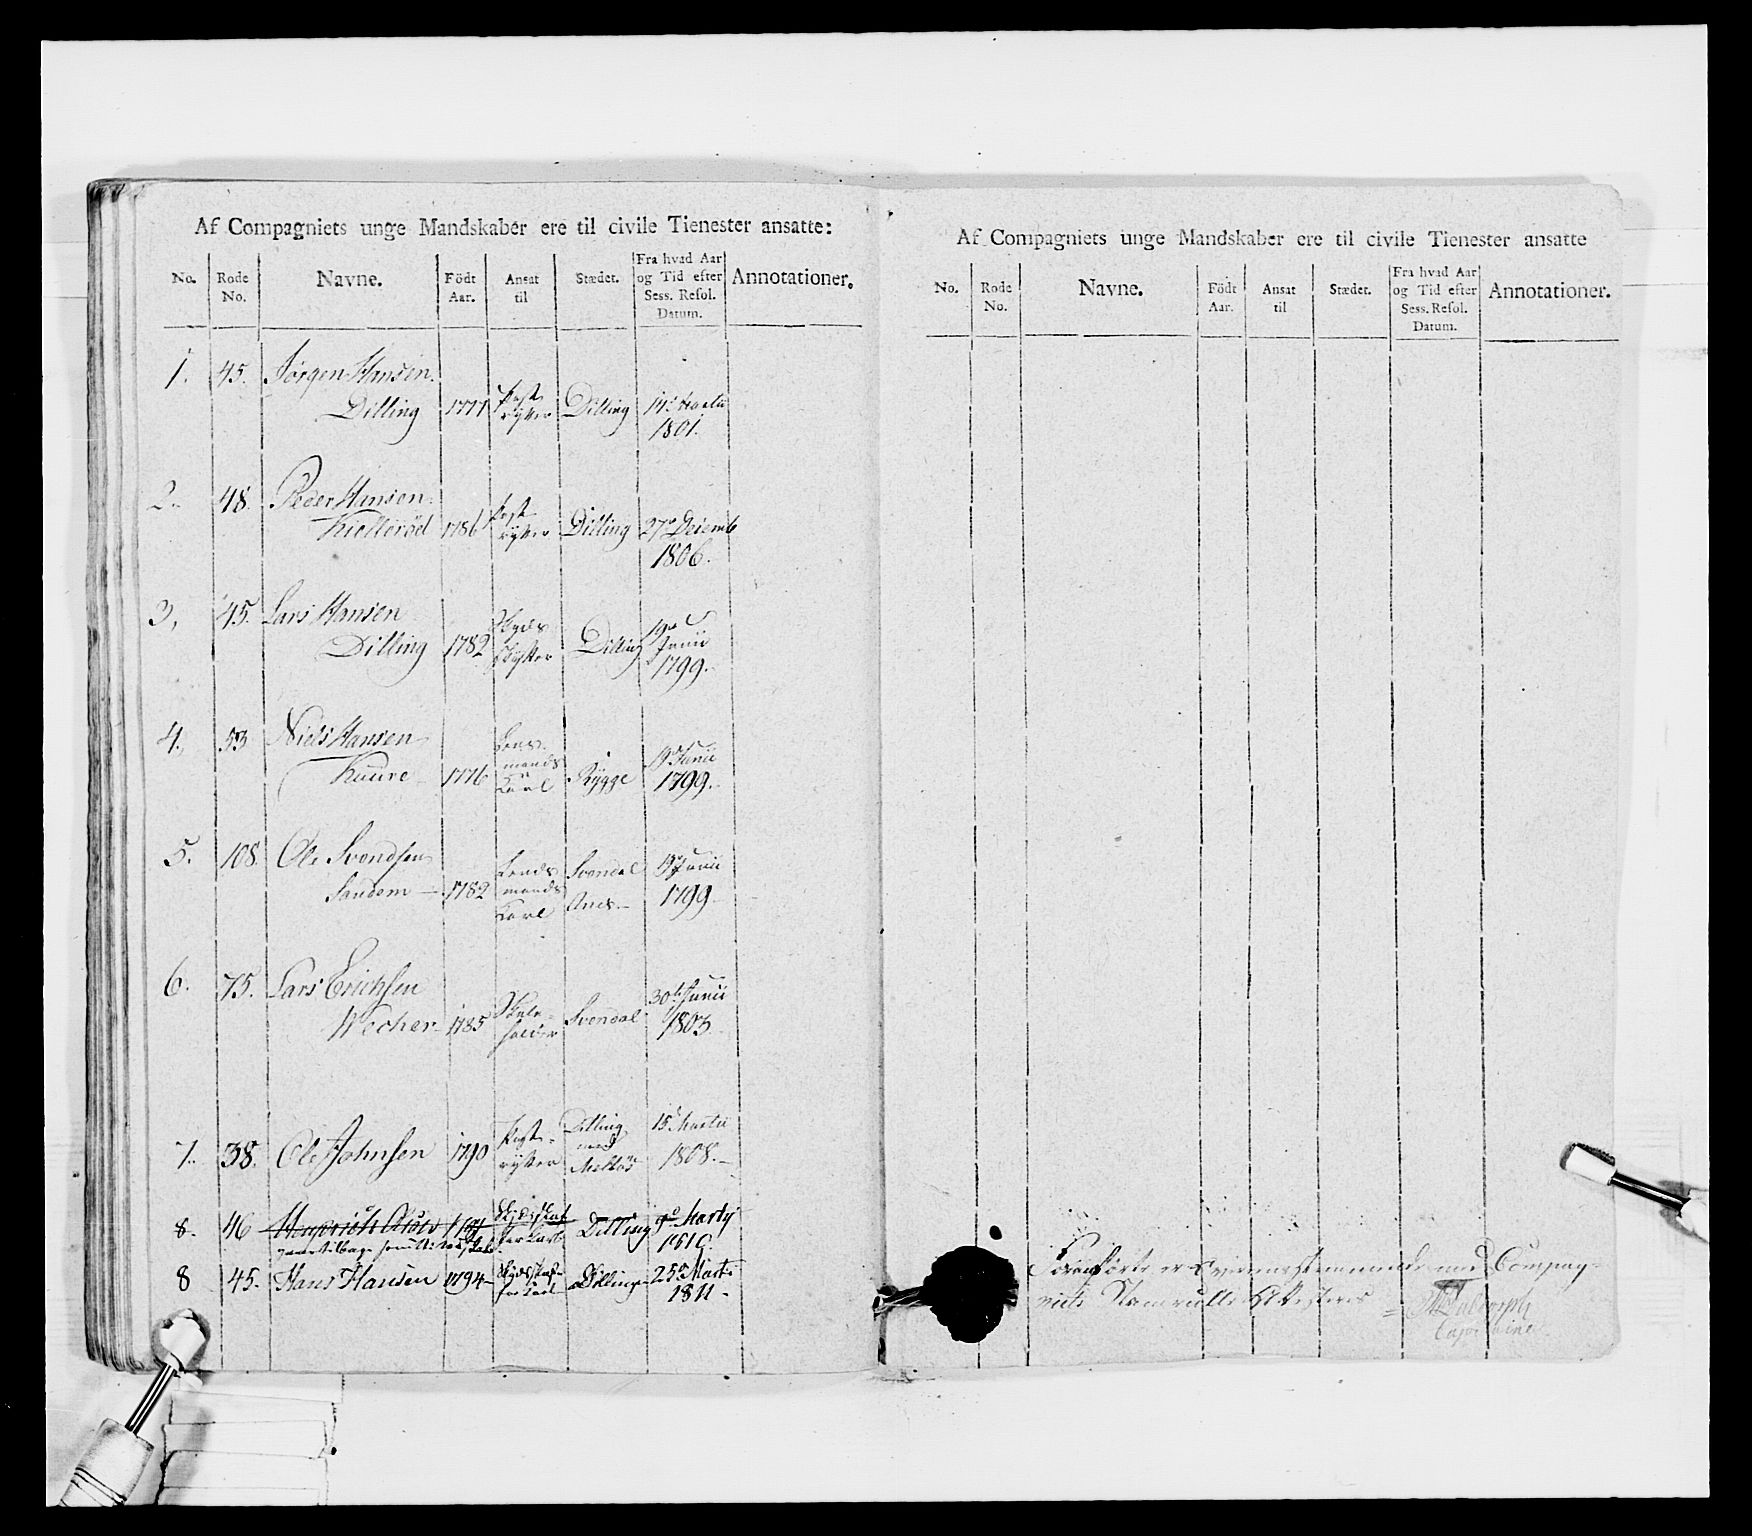 Af Compagniets unge Mandskaber ere til civile Tienester ansatte:
No. Rode No. Navne. Födt Aar. Ansat til Stædet. Fra hvad Aar og Tid efter Sess. Resol. Datum. Annotationer.
1. 45. Jörgen Hansen
Dilling 1777 Post rytter Dilling 14d Martii
1801.
2. 48. Peder Hansen
Kielleröd 1786 Post rytter Dilling 27de Decemb
1806.
3, 45. Lars Hansen
Dilling 1782 Skyds Skytter Dilling 19de Junii
1799.
4. 53 Niels Hansen
Kuure 1776 Lens mands Karl Rygge 19de Junii
1799.
5. 108. Ole Svendsen
Sandem 1782 Lends mands Karl Svendal Anex 19de Junii
1799.
6. 75. Lars Erichsen
Wecher 1785 Skole holder Svendal 30te Junii
1803.
7. 38. Ole Johnsen 1790 Post rytter Dilling med Melløs 15d Martii
1808.
8. 46 Dilling 9de Martij
1810
8 45. Hans Hansen 1794 Dilling 25de Marti
1811.
Af Compagniets unge Mandskaber ere til civile Tienester ansatte
No. Rode No. Navne. Födt Aar. Ansat til Stædet. Fra hvad Aar og Tid efter Sess. Resol. Datum. Annotationer.
Foranførte er Overeensstemmende med Compag-
niets Namrulle Attesteres
Capitaine